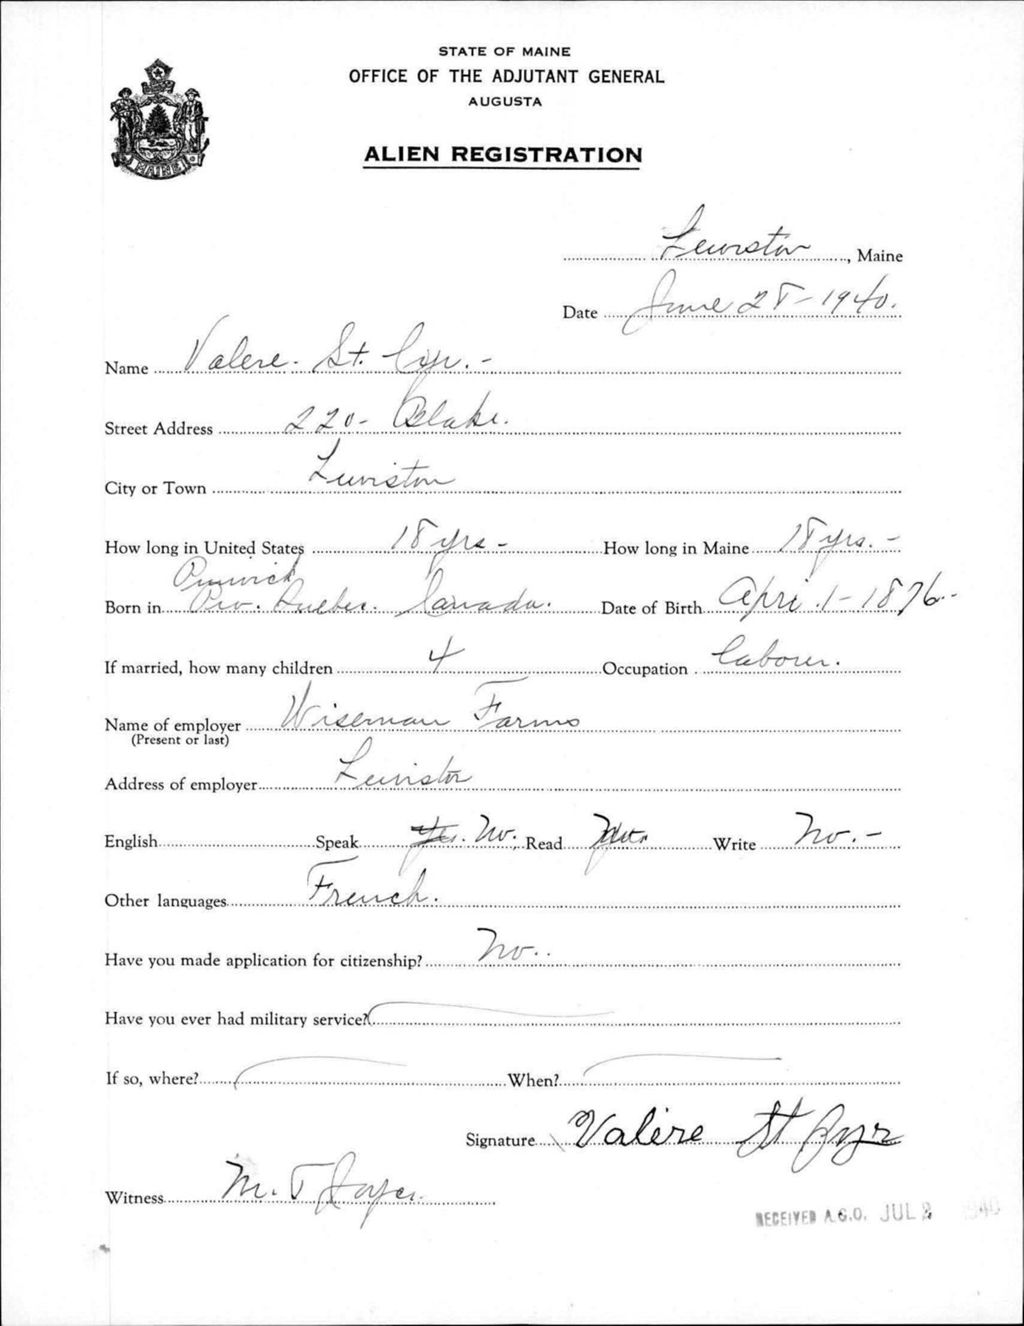 STATE OF MAINE
OFFICE OF THE ADJUTANT GENERAL
AUGUSTA
ALIEN REGISTRATION
MAINE
Lewiston, Maine
Date June 28-1940.
Name Valere. St. Cyr.-
Street Address 220- Blake.
City or Town Lewiston
How long in United States 18 yrs - How long in Maine 18 yrs. -
Born in Prov. Quebec. Canada. Date of Birth April 1-1876-
If married, how many children 4 Occupation labourer.
Name of employer Wiseman Farms
(Present or last)
Address of employer Lewiston
English Speak Yes. No. Read Write No.-
Other languages French.
Have you made application for citizenship? No..
Have you ever had military service?
If so, where? When?
Signature Valère St Cyr
Witness M. T.
RECEIVED A.G.O. JUL 2 1940